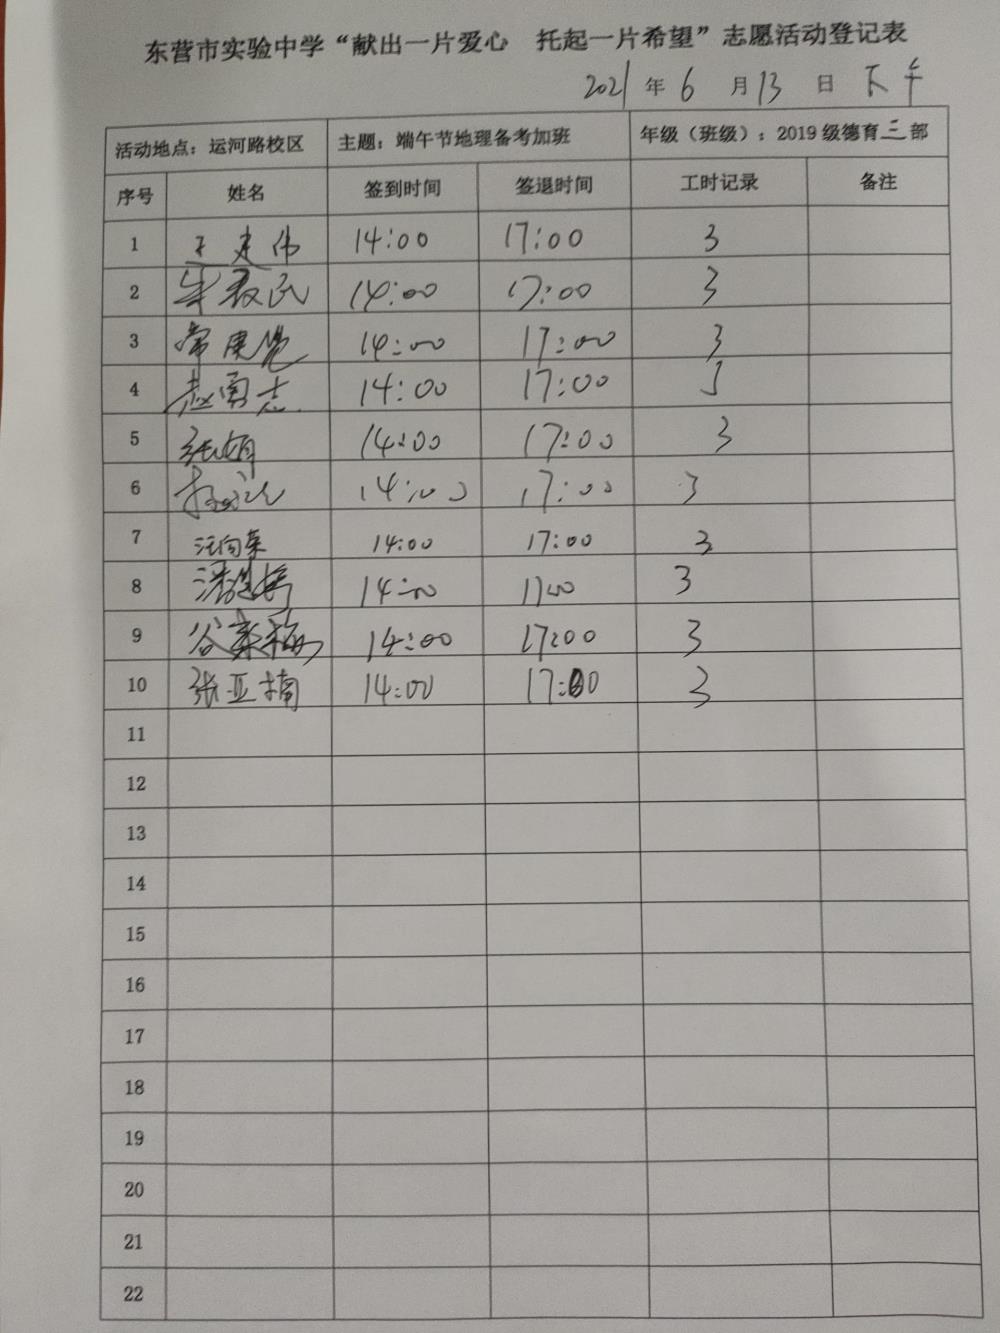 东营市实验中学“献出一片爱心 托起一片希望”志愿活动登记表
2021 年 6 月 13 日 下午
活动地点：运河路校区 主题：端午节地理备考加班 年级（班级）：2019 级德育三部
序号 姓名 签到时间 签退时间 工时记录 备注
1 王建伟 14:00 17:00 3
2 14:00 17:00 3
3 14:00 17:00 3
4 赵勇志 14:00 17:00 3
5 张娟 14:00 17:00 3
6 14:00 17:00 3
7 汪向荣 14:00 17:00 3
8 14:00 1700 3
9 谷素梅 14:00 17:00 3
10 张亚楠 14:00 17:00 3
11
12
13
14
15
16
17
18
19
20
21
22